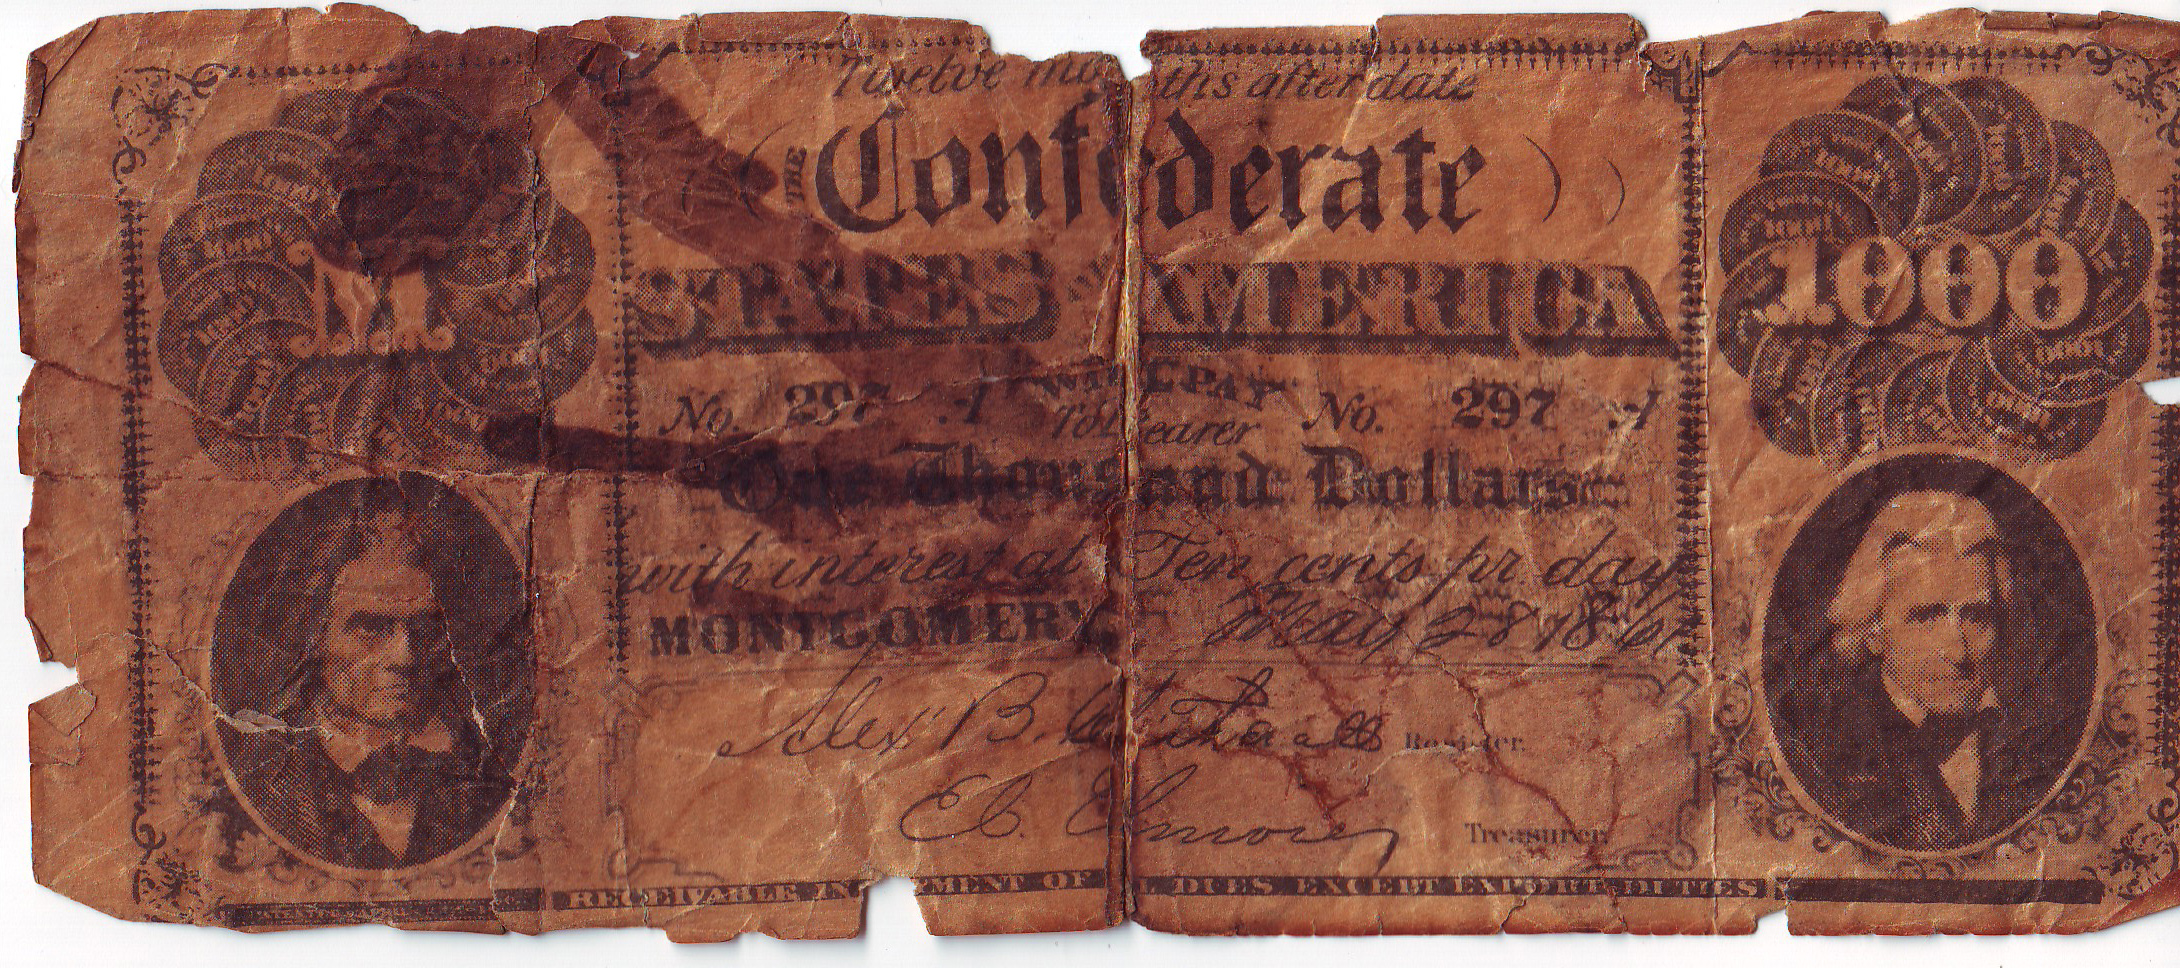 Twelve months after date
THE Confederate
STATES AMERICA
M
1000
No. 297 A WILL PAY No. 297 A
To Bearer
One Thousand Dollars
with interest at Ten cents pr day
MONTGOMERY May 28 1861
Alex B. Register.
E.C. Elmore Treasurer.
RECEIVABLE IN MENT OF L DUES EXCEPT EXPORT DUTIES